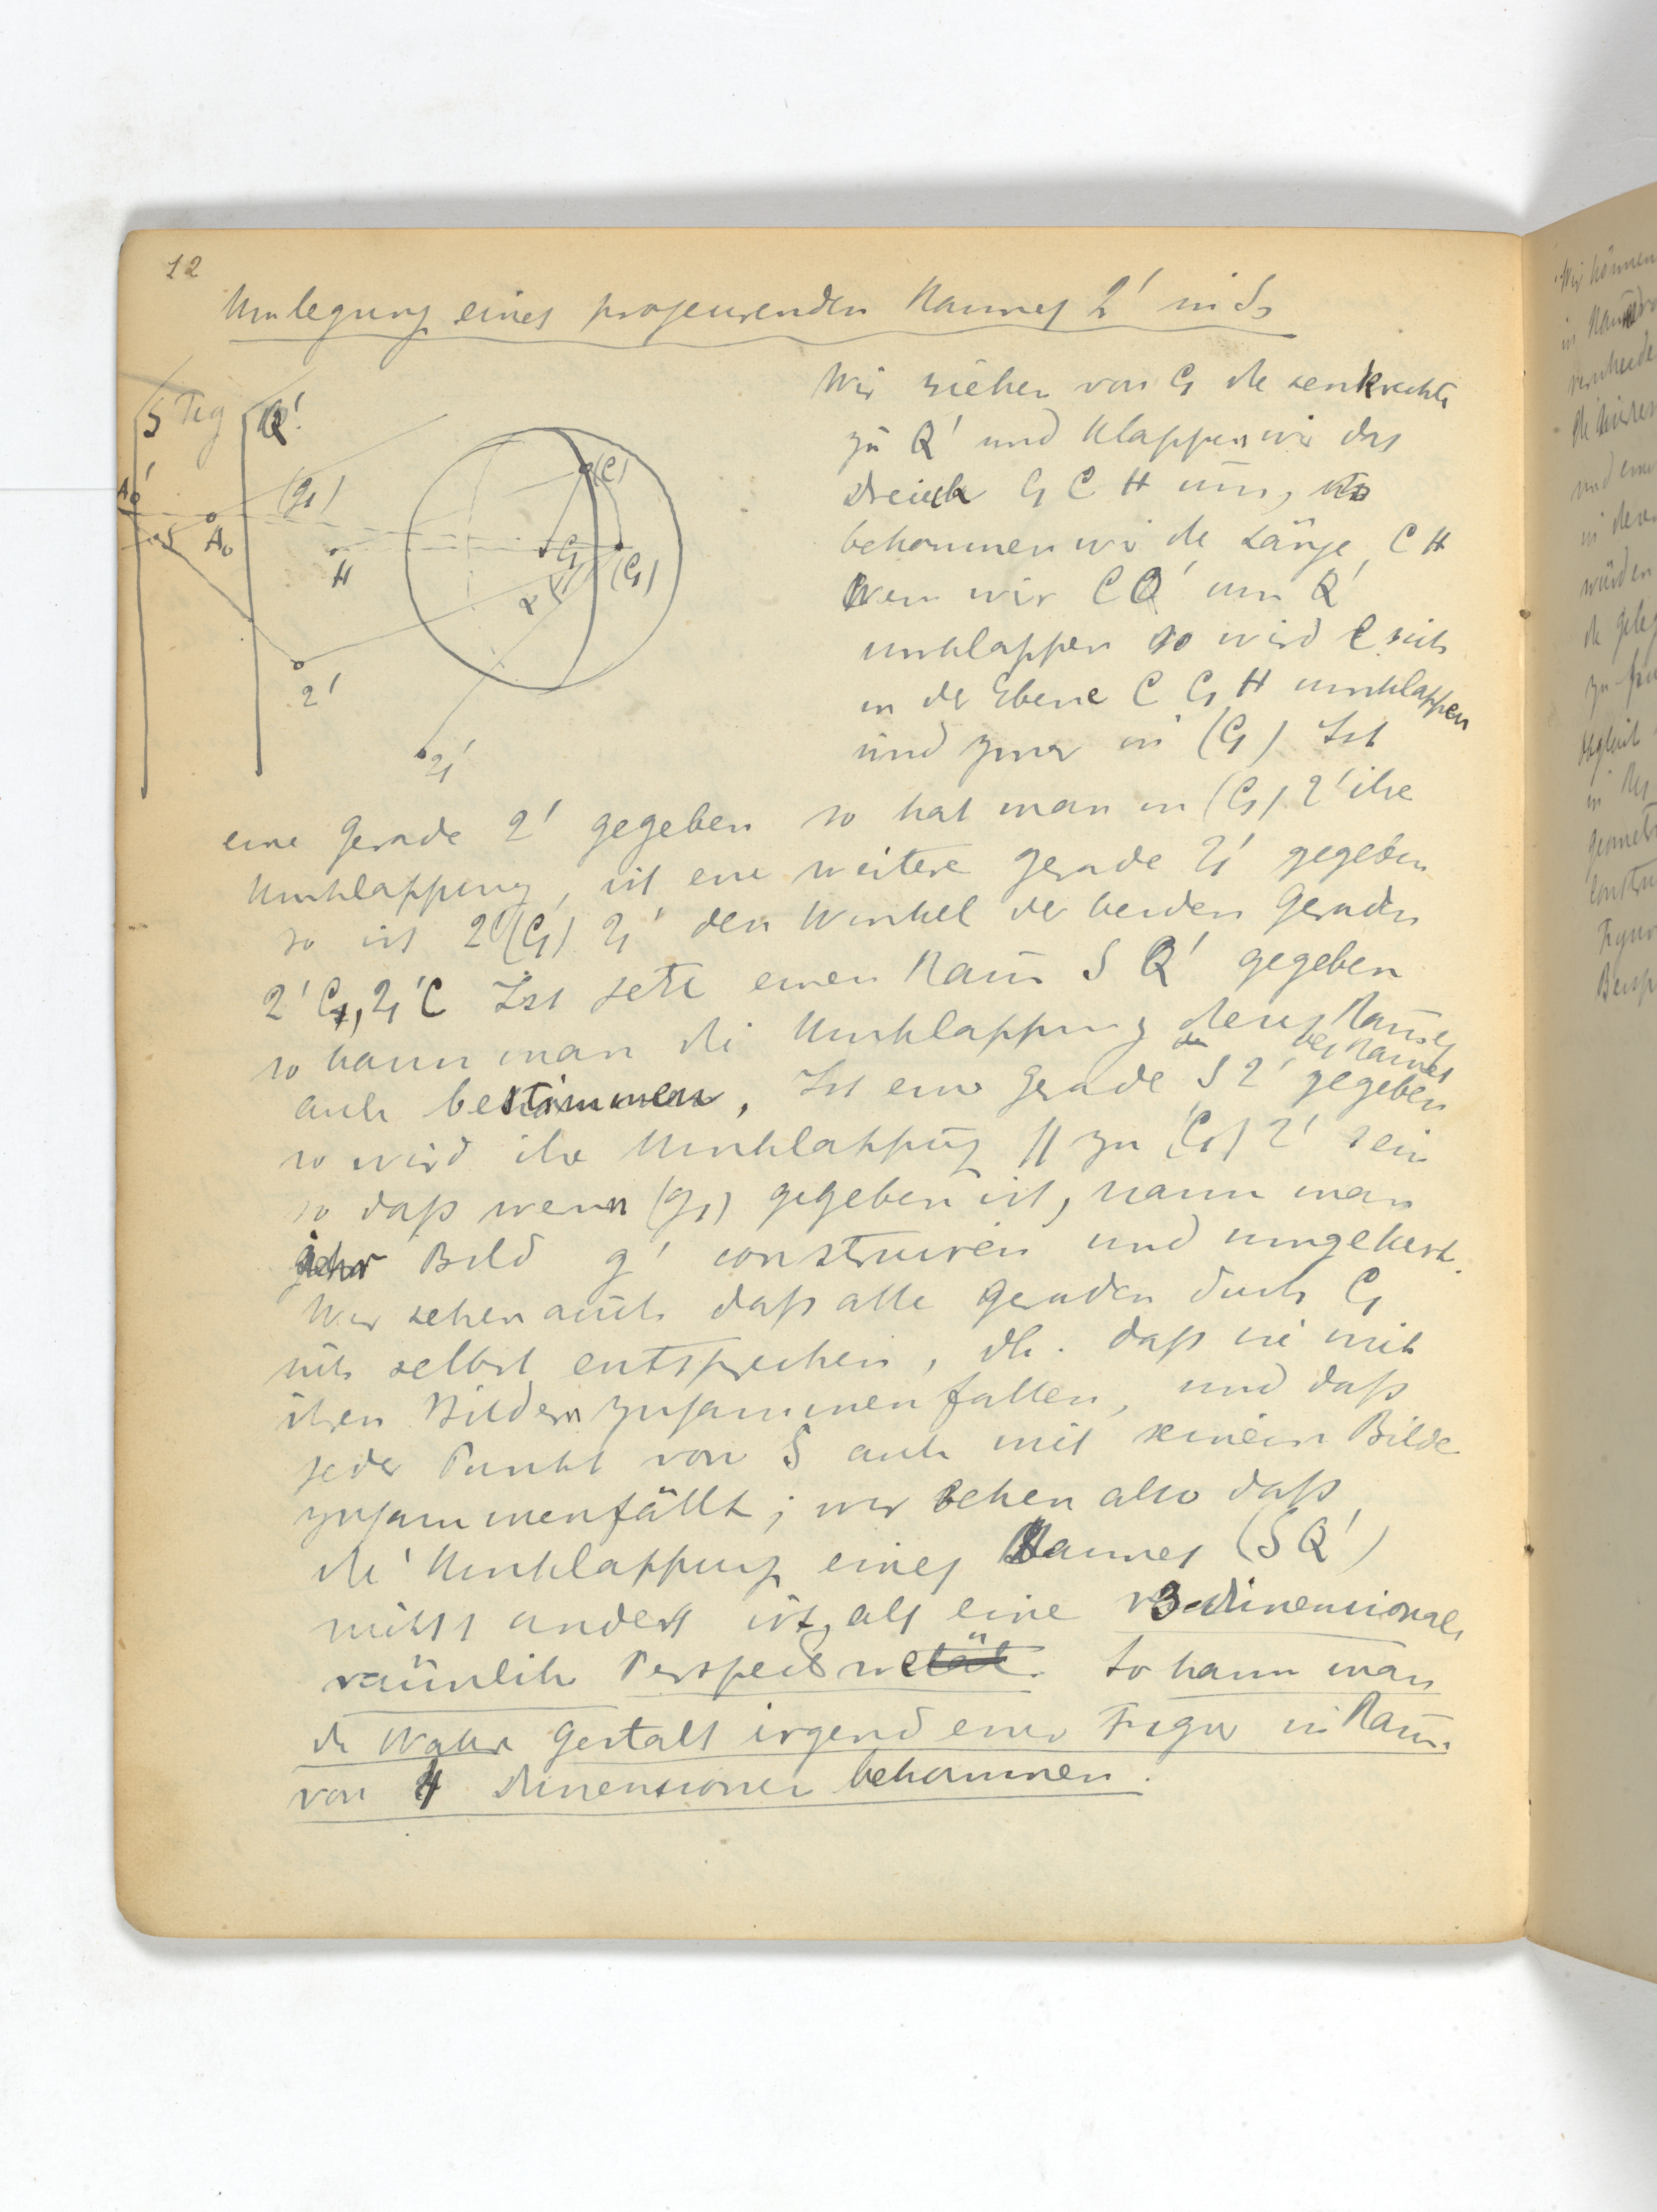 12
Umlegung eines projeurenden Raumes 2' in S
Wir ziehen von C₁ die senkrechte
zu Q' und klappen wir das
dreieck C₁ C H um, so
bekommen wir die Länge C H
Wen wir C Q' um Q'
umklappen so wird C sich
in der Ebene C C₁ H umklappen
und zwar in (C₁) Ist
S
Q'
A₀'
A₀
(g₁)
H
(C)
C₁
(C₁)
α
2'
2₁'
eine Gerade 2' gegeben so hat man in (C₁) 2' ihre
Umklappung, ist eine weitere gerade 2₁' gegeben
so ist 2'(C₁) 2₁' den Winkel der beiden Geraden
2'C₁, 2₁'C Ist jetzt einen Raum S Q' gegeben
so kann man die Umklappung Raumes
des Raumes
auch bestimmen, Ist eine Gerade S 2' gegeben
so wird ihre Umklappung // zu (C₁) 2' sein
so daß wenn (g₁) gegeben ist, kann man
ihr Bild g' construiren und umgekert.
Wir sehen auch daß alle geraden durch C₁
sich selbst entsprechen, dh. daß sie mit
ihren Bildern zusammenfallen, und daß
jeder Punkt von S auch mit seinem Bilde
zusammenfällt; wir sehen also daß
die Umklappung eines Raumes (S Q')
nichts anders ist, als eine 3-dimensionale
räumliche So kann man
die Wahre Gestalt irgend einer Figur in Raum
von 4 dimensionen bekommen.
Wir können
in
und eine
in der
würden
zu
in
Figur